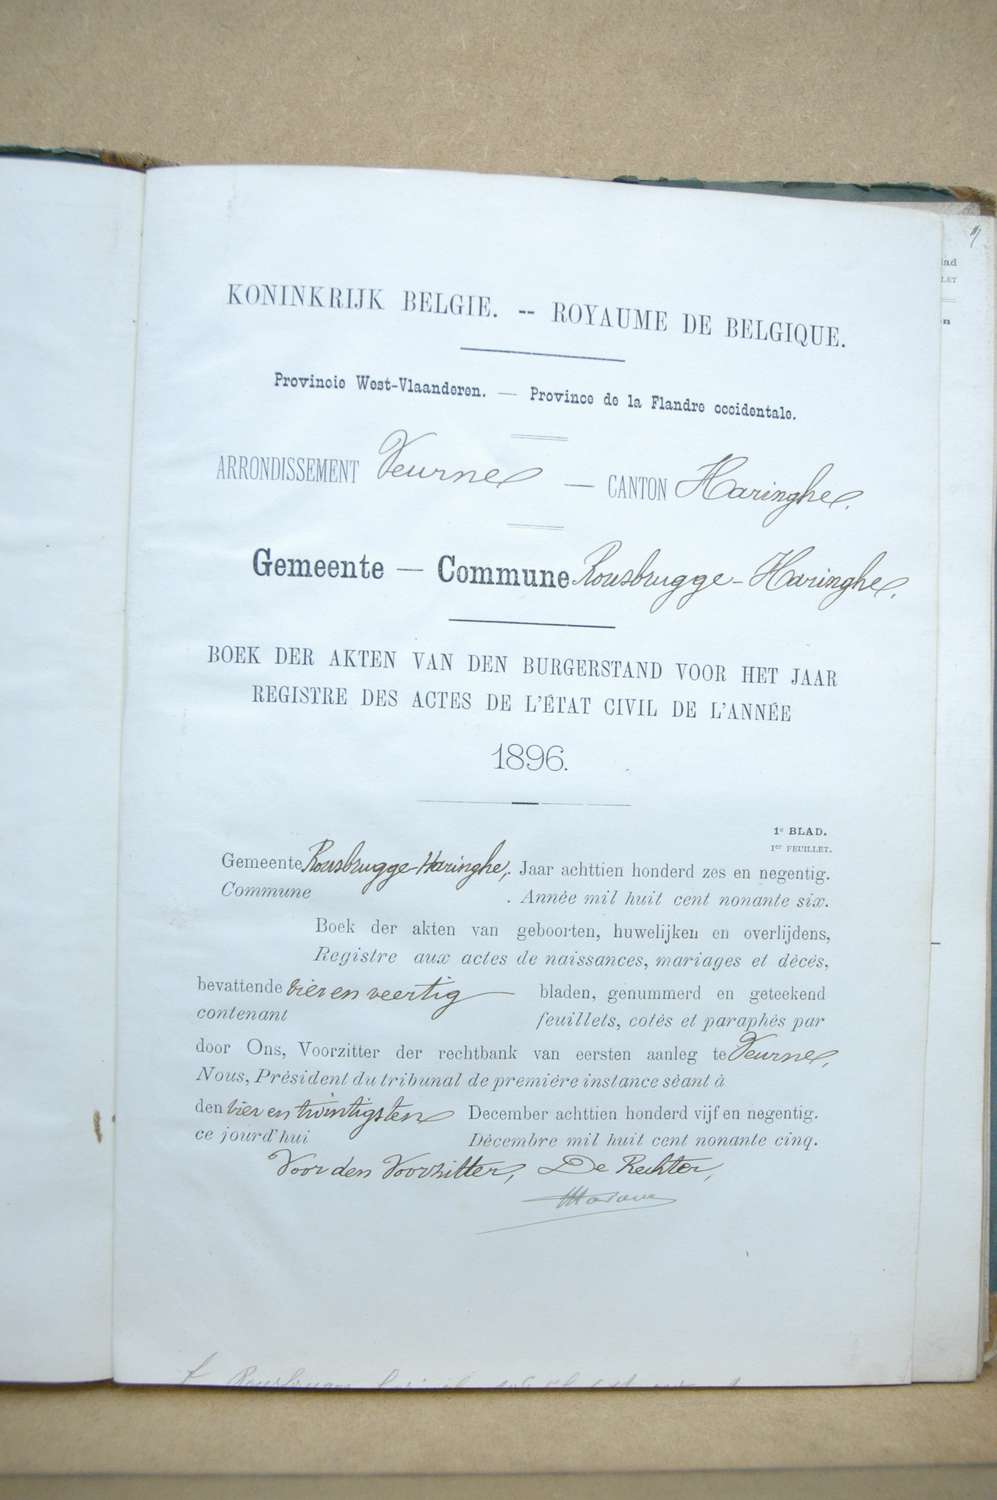 KONINKRIJK BELGIE. -- ROYAUME DE BELGIQUE.
Provincie West-Vlaanderen. — Province de la Flandre occidentale.
ARRONDISSEMENT Veurne — CANTON Haringhe.
Gemeente — Commune Rousbrugge-Haringhe.
BOEK DER AKTEN VAN DEN BURGERSTAND VOOR HET JAAR
REGISTRE DES ACTES DE L'ÉTAT CIVIL DE L'ANNÉE
1896.
1e BLAD.
1er FEUILLET.
Gemeente Rousbrugge-Haringhe, Jaar achttien honderd zes en negentig.
Commune . Année mil huit cent nonante six.
Boek der akten van geboorten, huwelijken en overlijdens,
Registre aux actes de naissances, mariages et décès,
bevattende vier en veertig — bladen, genummerd en geteekend
contenant feuillets, cotés et paraphés par
door Ons, Voorzitter der rechtbank van eersten aanleg te Veurne,
Nous, Président du tribunal de première instance séant à
den vier en twintigsten December achttien honderd vijf en negentig.
ce jourd'hui Décembre mil huit cent nonante cinq.
Voor den Voorzitter, De Rechter,
lad
LET
en